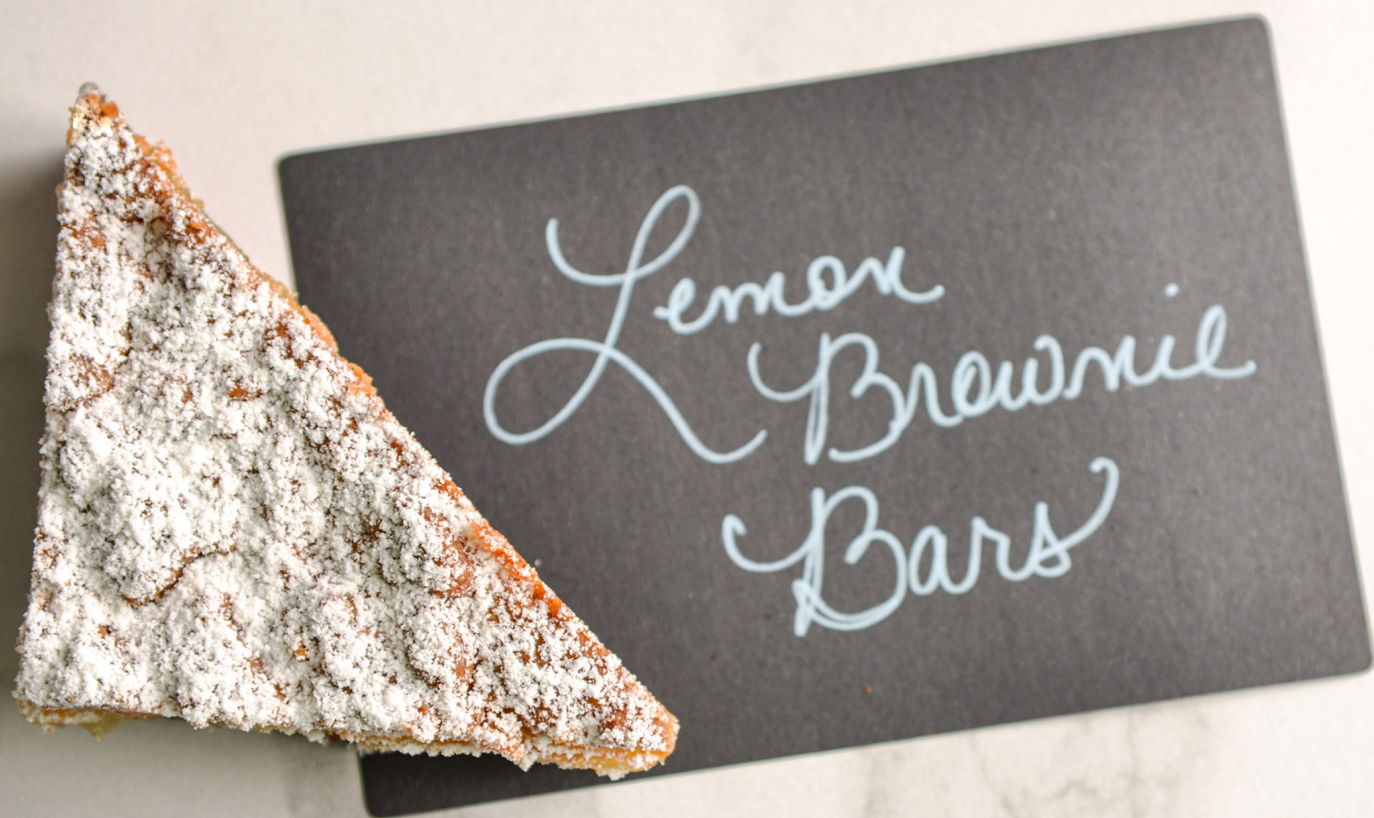 Lemon
Brownie
Bars